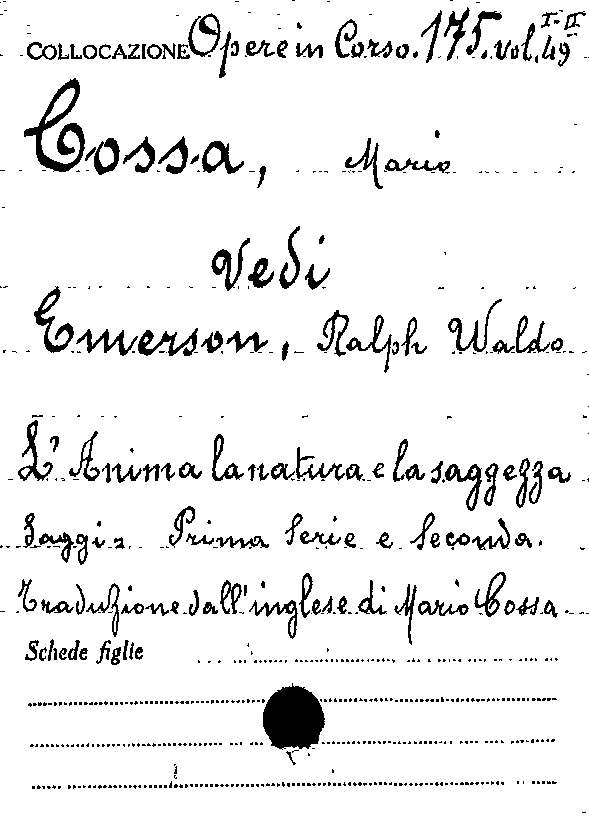 COLLOCAZIONE Opere in Corso. 175. vol. 49 I-II
Cossa, Mario
Vedi
Emerson, Ralph Waldo
L'Anima la natura e la saggezza
Saggi - Prima Serie e Seconda.
Traduzione dall'inglese di Mario Cossa.
Schede figlie